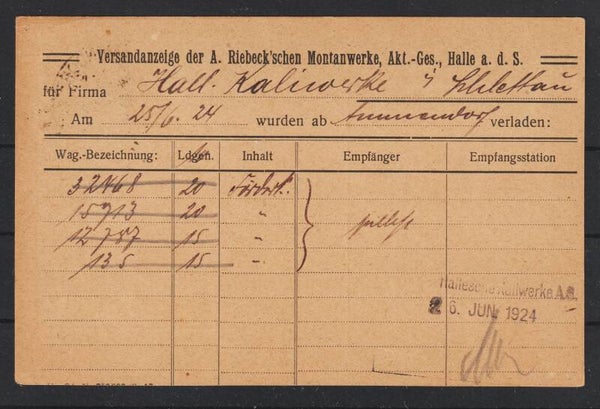 Versandanzeige der A. Riebeck'schen Montanwerke, Akt.-Ges., Halle a. d. S.
für Firma Hall. Kaliwerke Schlettau
Am 25/6. 24 wurden ab Ammendorf verladen:
Wag.-Bezeichnung: Ldgen. Inhalt Empfänger Empfangsstation
32468 20 Förderk.
15913 20 "
12787 15 "
135 15 "
Hallesche Kaliwerke A.G.
26. JUN. 1924